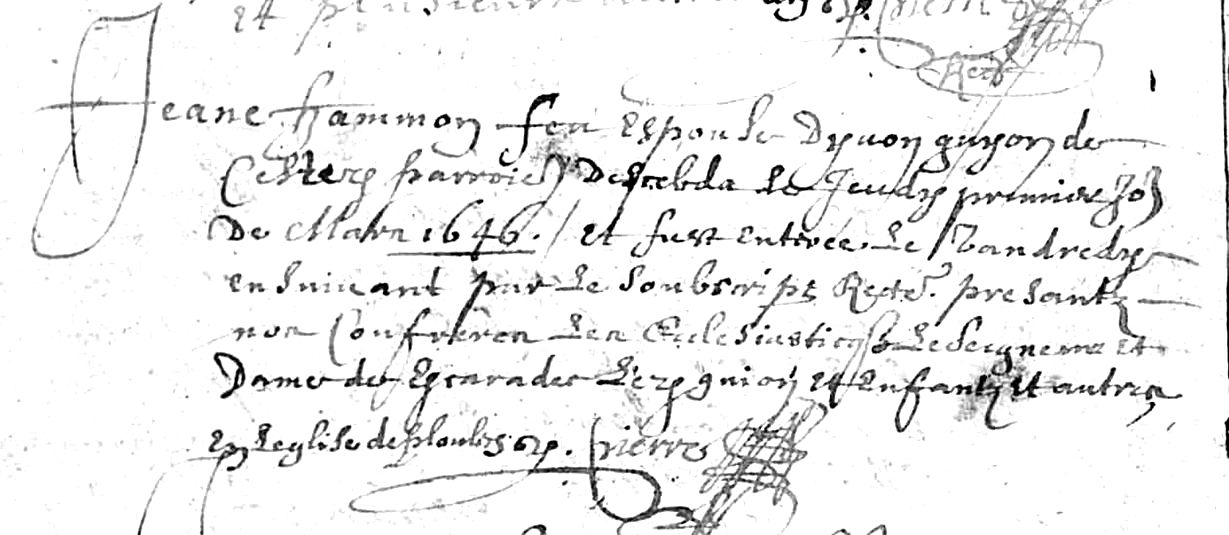 et plusieurs
Rect
Jeane hammon feu Espouse Dyvon guyon de
Cestes parroies Desceda le Jeudy premier Jo
De Mars 1646. / et fust enteree le Vandredy
ensuivant par le soubscript Recte. presantz
nos Confreres les Eclesiasticqs le seigneur et
Dame de guion et enfantz et autres
En leglise de . pierre